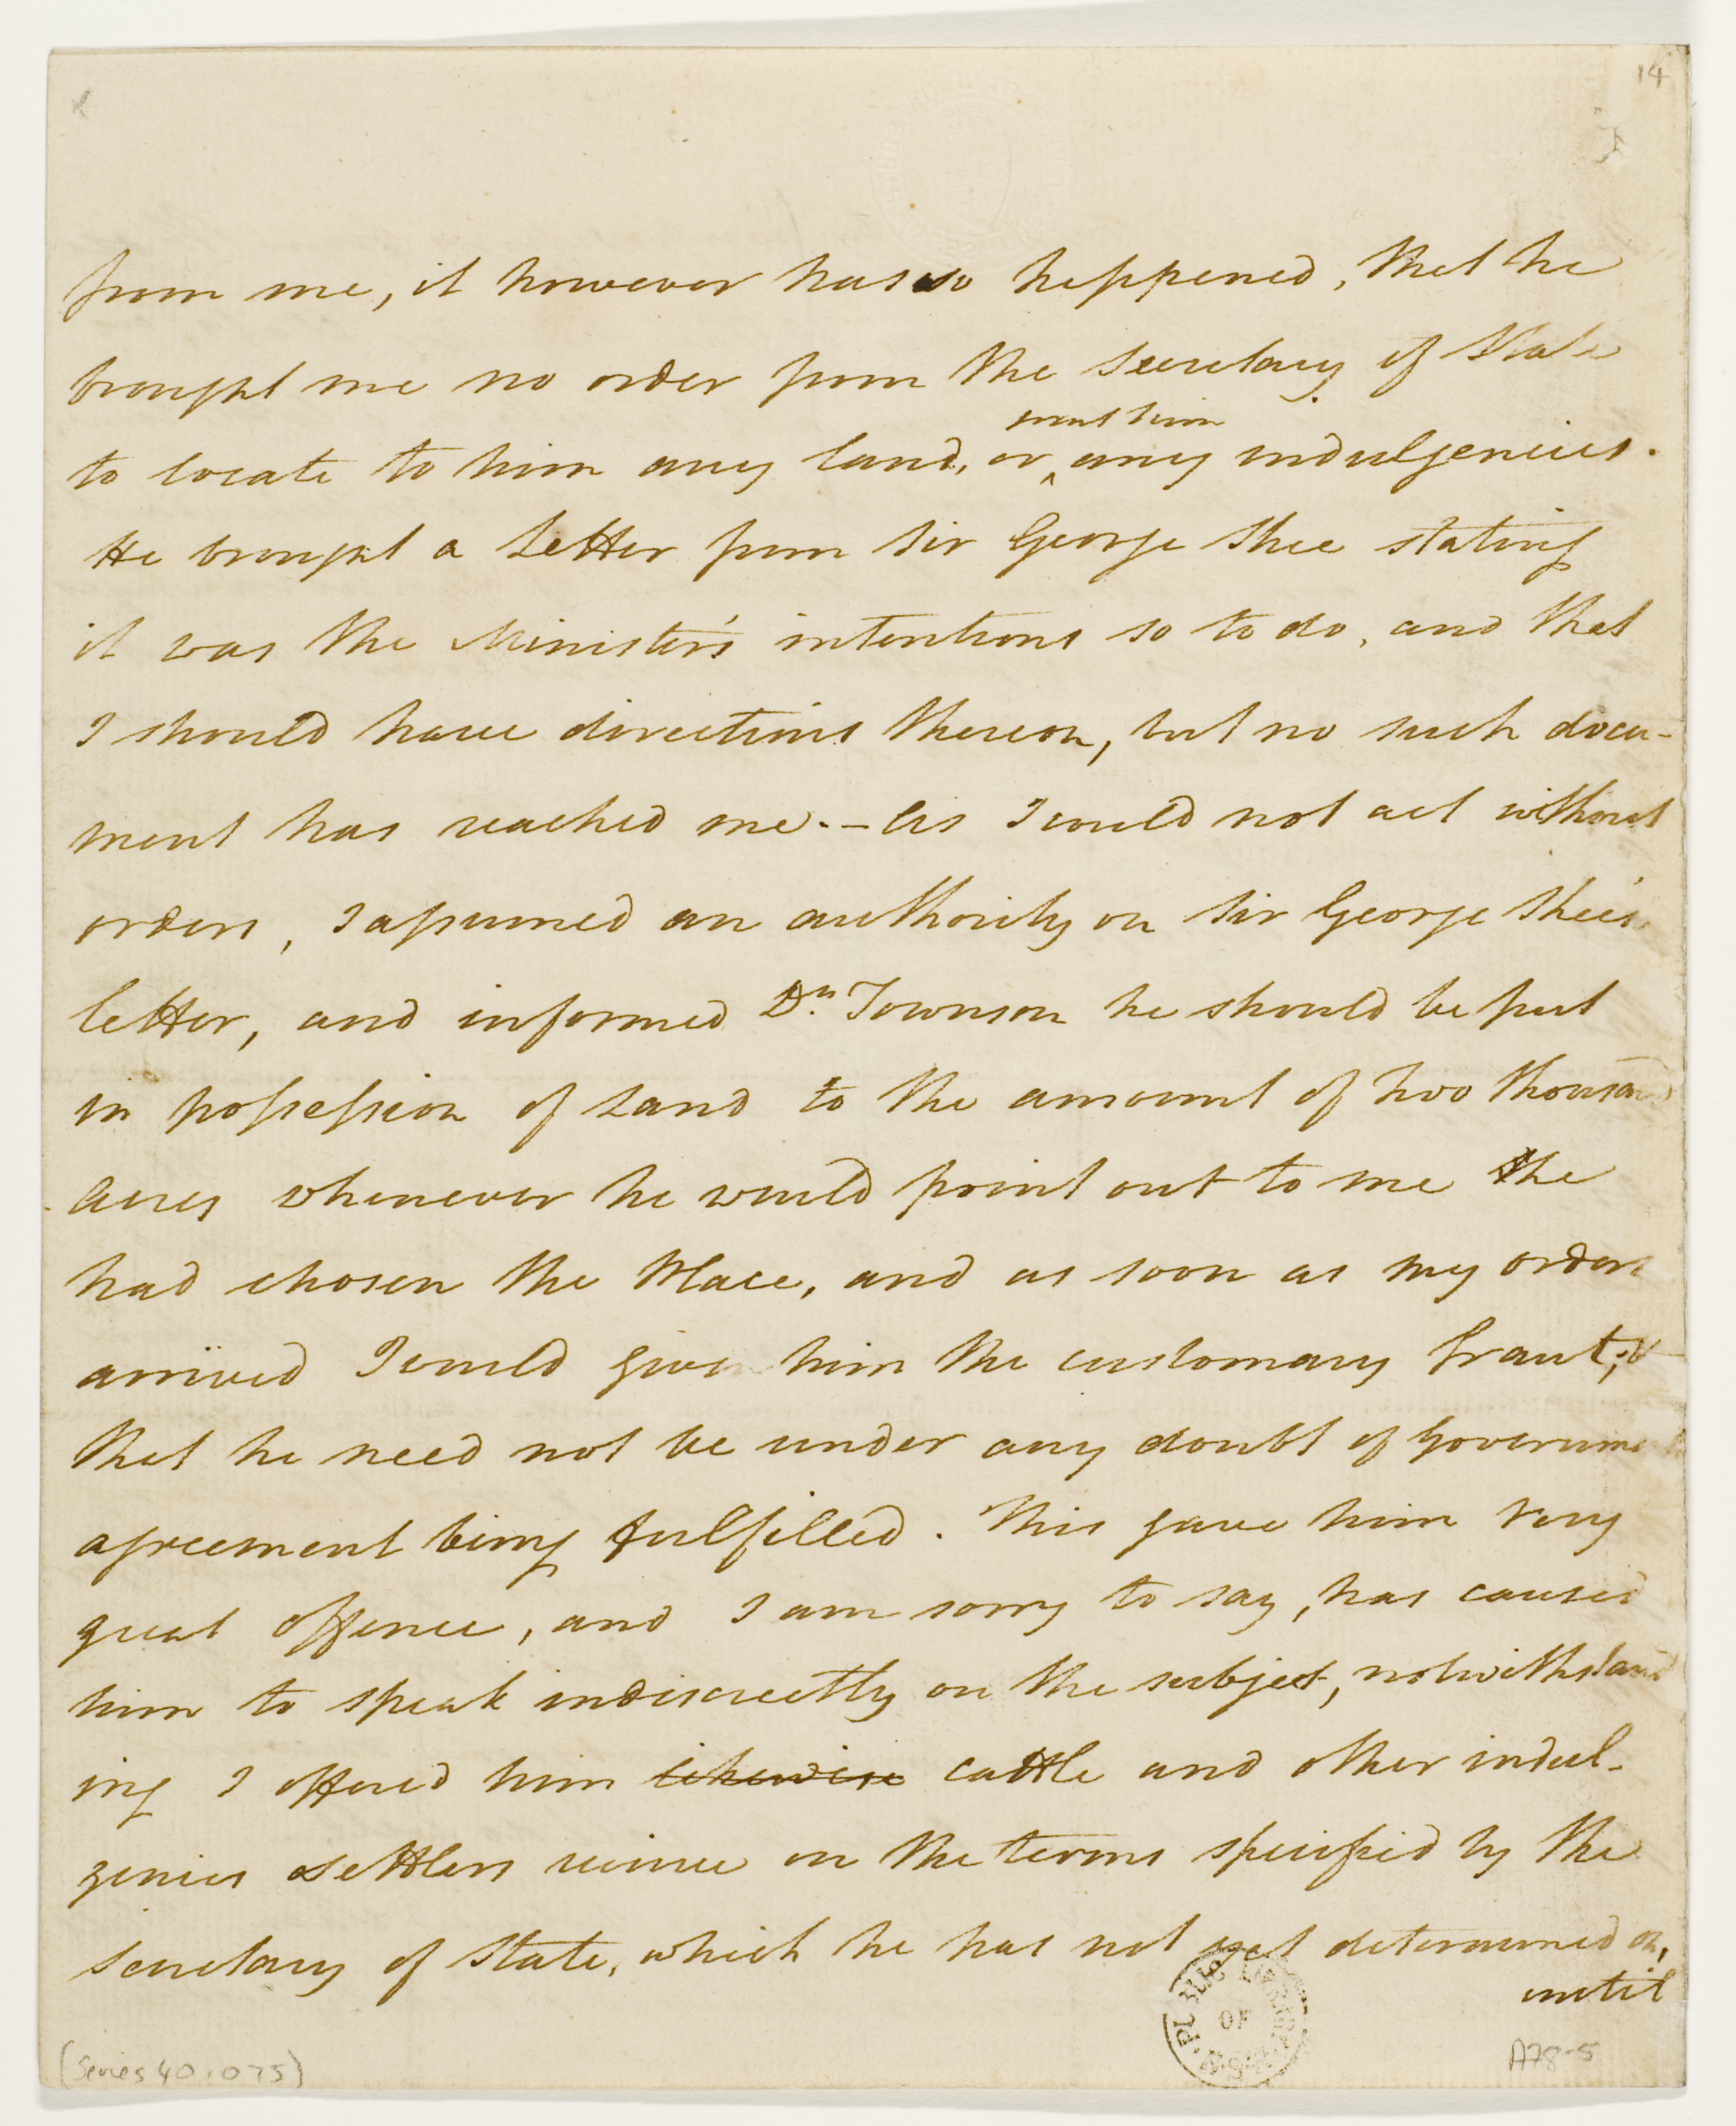 14
from me, it however has so happened, that he
brought me no order from the Secretary of State
grant him
to locate to him any land, or ^ any indulgencies.
He brought a Letter from Sir George Shee stating
it was the Minister's intentions so to do, and that
I should have directions thereon, but no such docu-
ment has reached me. – As I could not act without
orders, I assumed an authority on Sir George Shee's
letter, and informed Dr. Townson he should be put
in possession of Land to the amount of two thousand
Acres whenever he would point out to me he
had chosen the Place, and as soon as my orders
arrived I could give him the customary Grant, &
that he need not be under any doubt of Government
agreement being fulfilled. This gave him very
great offence, and I am sorry to say, has caused
him to speak indiscreetly on the subject, notwithstand
ing I offered him likewise cattle and other indul-
gencies settlers receive on the terms specified by the
Secretary of State, which he has not yet determined on,
until
PUBLIC LIBRARY OF N.S.W.
(Series 40.075)
A78-5